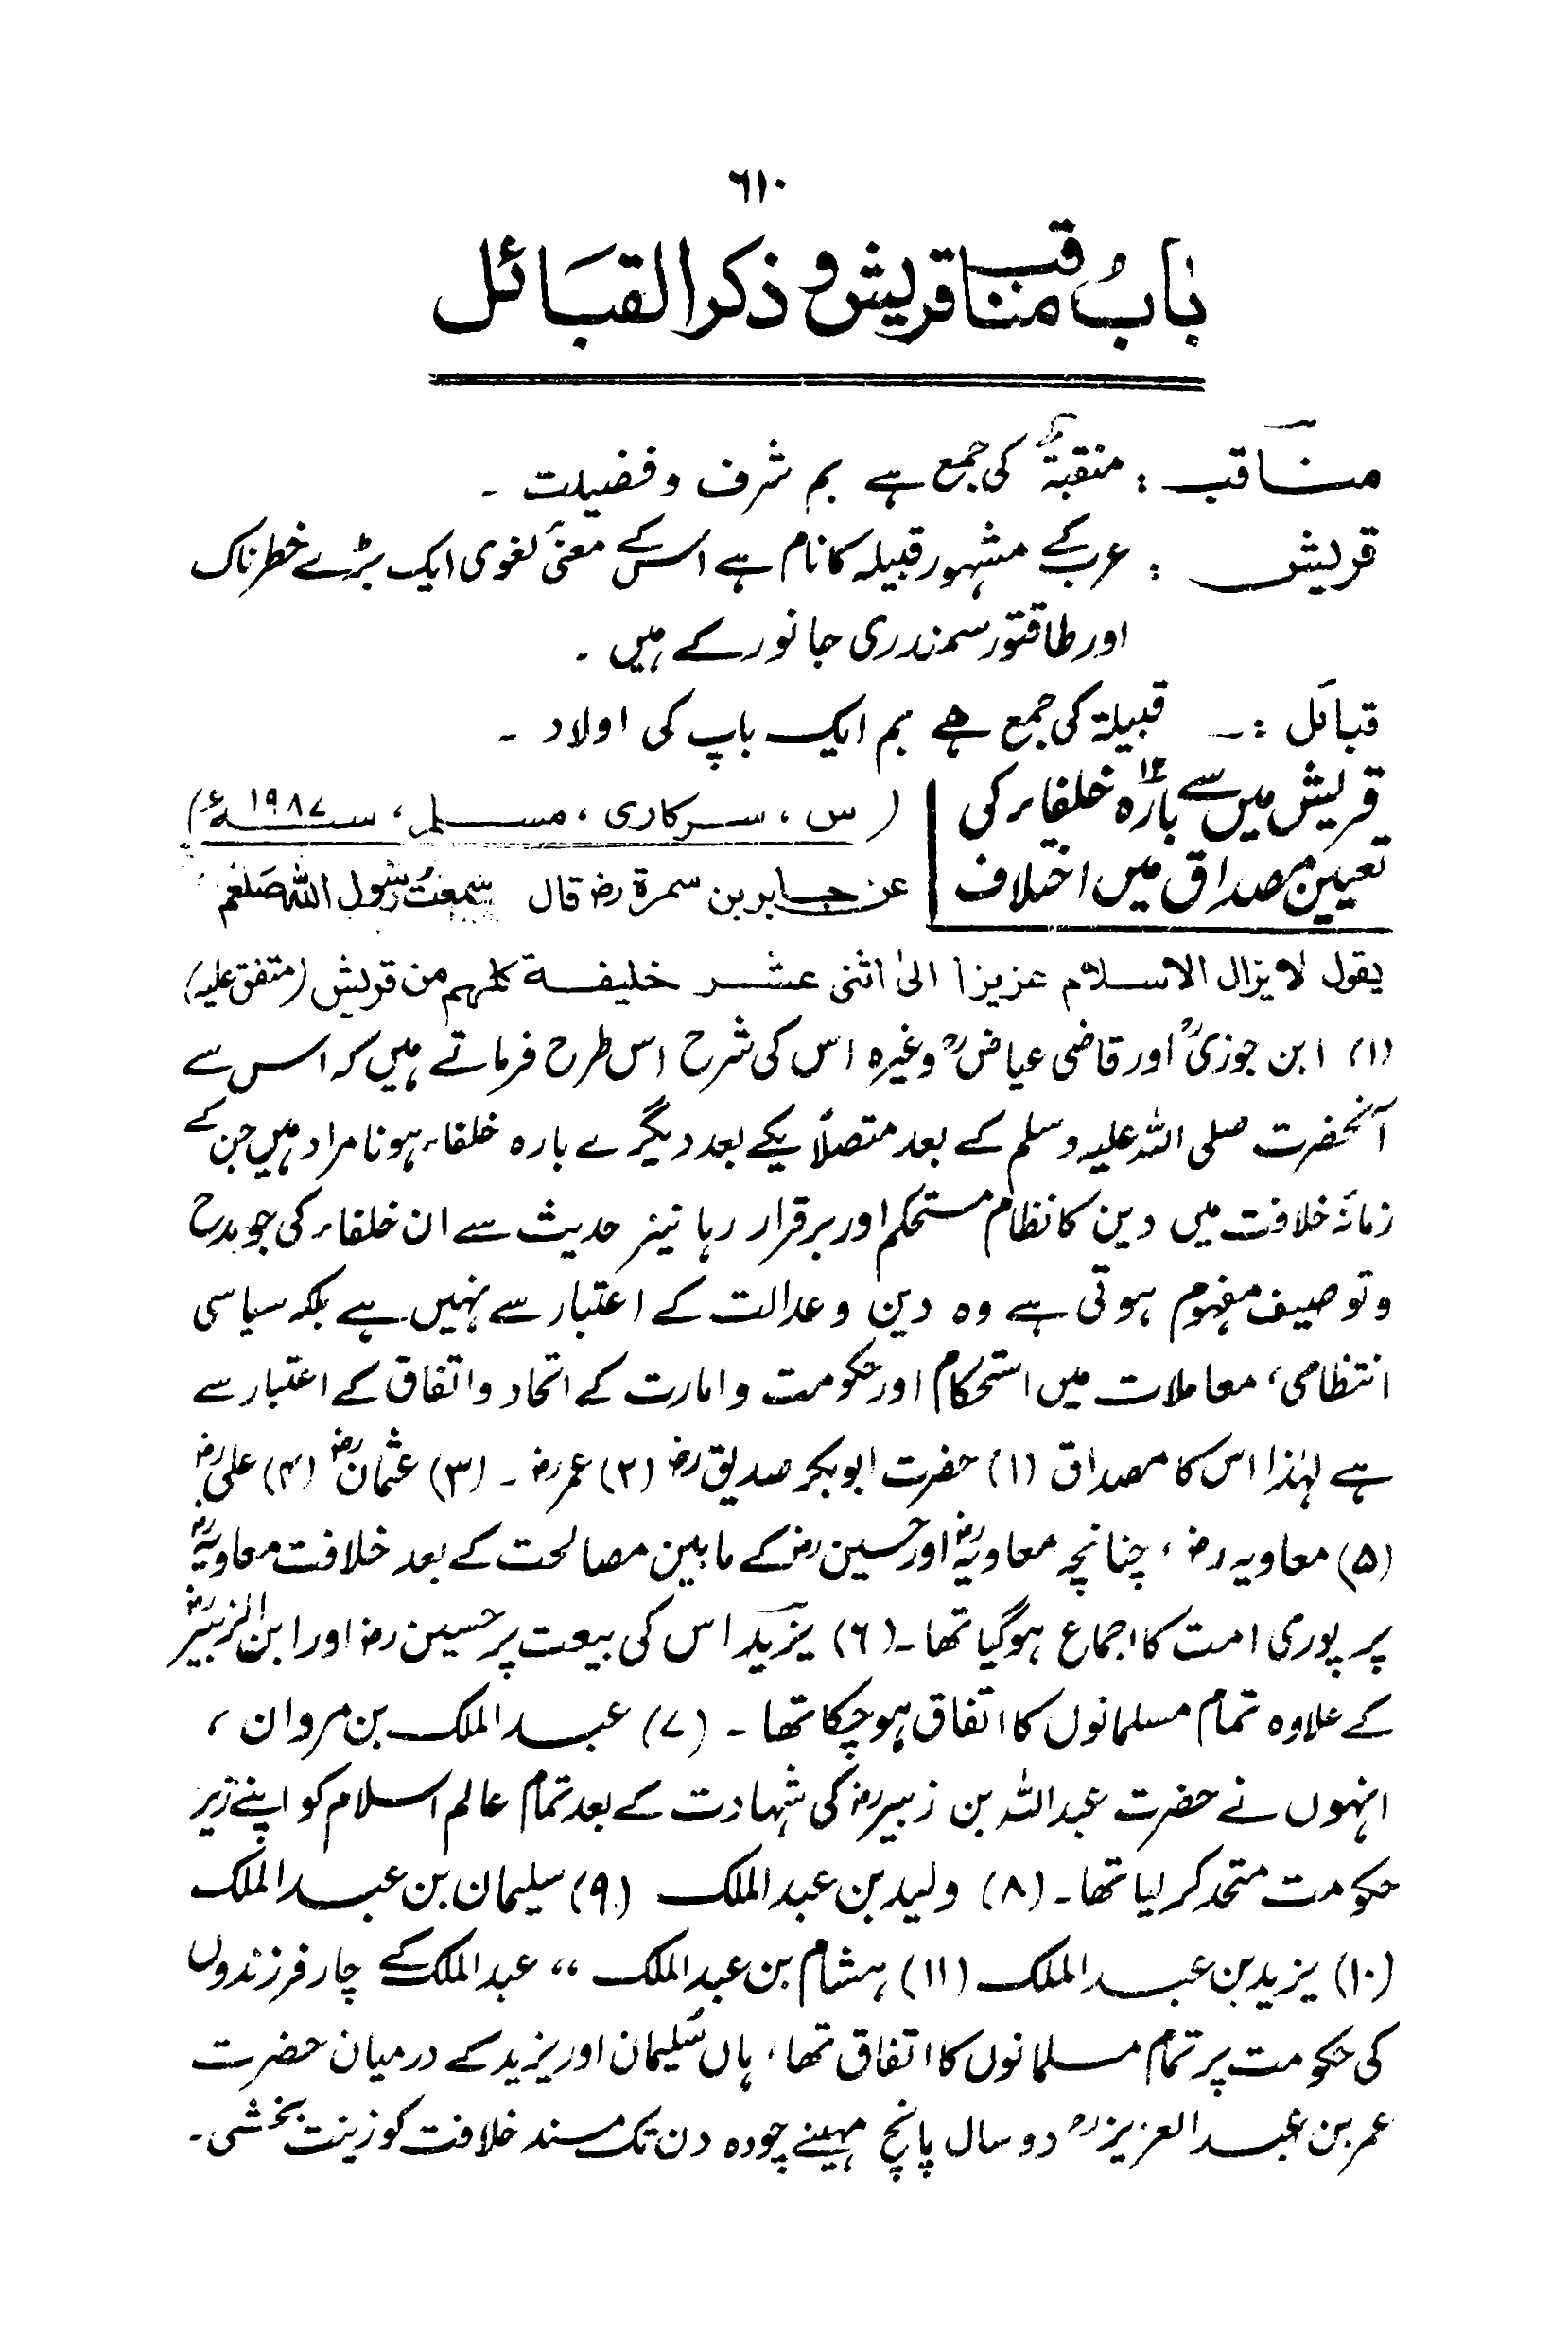 ٦١٠
بابُ مناقب قریش و ذکر القبَائل
منَاقب : منقبۃٌ کی جمع ہے بم شرف و فضیلت ۔
قریش : عرب کے مشہور قبیلہ کا نام ہے اس کے معنیٰ لغوی ایک بڑے خطرناک
اور طاقتور سمندری جانور کے ہیں ۔
قبائل :۔ قبیلۃ کی جمع ہے بم ایک باپ کی اولاد ۔
قریش میں سے بارہ ۱۲ خلفاء کی
تعیین مصداق میں اختلاف
( س ، سرکاری ، مسلم ، سنہ ۱۹۸۷ء )
عن جابر بن سمرۃ رض قال سمعتُ رسُول اللہ صَلعم
یقول لا یزال الاسلام عزیزاً الیٰ اثنی عشر خلیفۃ کلہم من قریش (متفق علیہ)
(۱) ابن جوزیؒ اور قاضی عیاضؒ وغیرہ اس کی شرح اس طرح فرماتے ہیں کہ اس سے
آنحضرت صلی اللہ علیہ وسلم کے بعد متصلاً یکے بعد دیگرے بارہ خلفاء ہونا مراد ہیں جن کے
زمانۂ خلافت میں دین کا نظام مستحکم اور برقرار رہا نیز حدیث سے ان خلفاء کی جو مدح
و توصیف مفہوم ہوتی ہے وہ دین و عدالت کے اعتبار سے نہیں ہے بلکہ سیاسی
انتظامی ، معاملات میں استحکام اور حکومت و امارت کے اتحاد و اتفاق کے اعتبار سے
ہے لہٰذا اس کا مصداق (۱) حضرت ابوبکر صدیق رض (۲) عمر رض ۔ (۳) عثمان رض (۴) علی رض
(۵) معاویہ رض ، چنانچہ معاویہ رض اور حسین رض کے مابین مصالحت کے بعد خلافت معاویہ رض
پر پوری امت کا اجماع ہو گیا تھا ۔ (٦) یزید اس کی بیعت پر حسین رض اور ابن الزبیر رض
کے علاوہ تمام مسلمانوں کا اتفاق ہو چکا تھا ۔ (۷) عبد الملک بن مروان ،
انہوں نے حضرت عبد اللہ بن زبیر رض کی شہادت کے بعد تمام عالم اسلام کو اپنے زیر
حکومت متحد کر لیا تھا ۔ (۸) ولید بن عبد الملک (۹) سلیمان بن عبد الملک
(۱۰) یزید بن عبد الملک (۱۱) ہشام بن عبد الملک ،، عبد الملک کے چار فرزندوں
کی حکومت پر تمام مسلمانوں کا اتفاق تھا ، ہاں سُلیمان اور یزید کے درمیان حضرت
عمر بن عبد العزیزؒ دو سال پانچ مہینے چودہ دن تک مسند خلافت کو زینت بخشی ۔